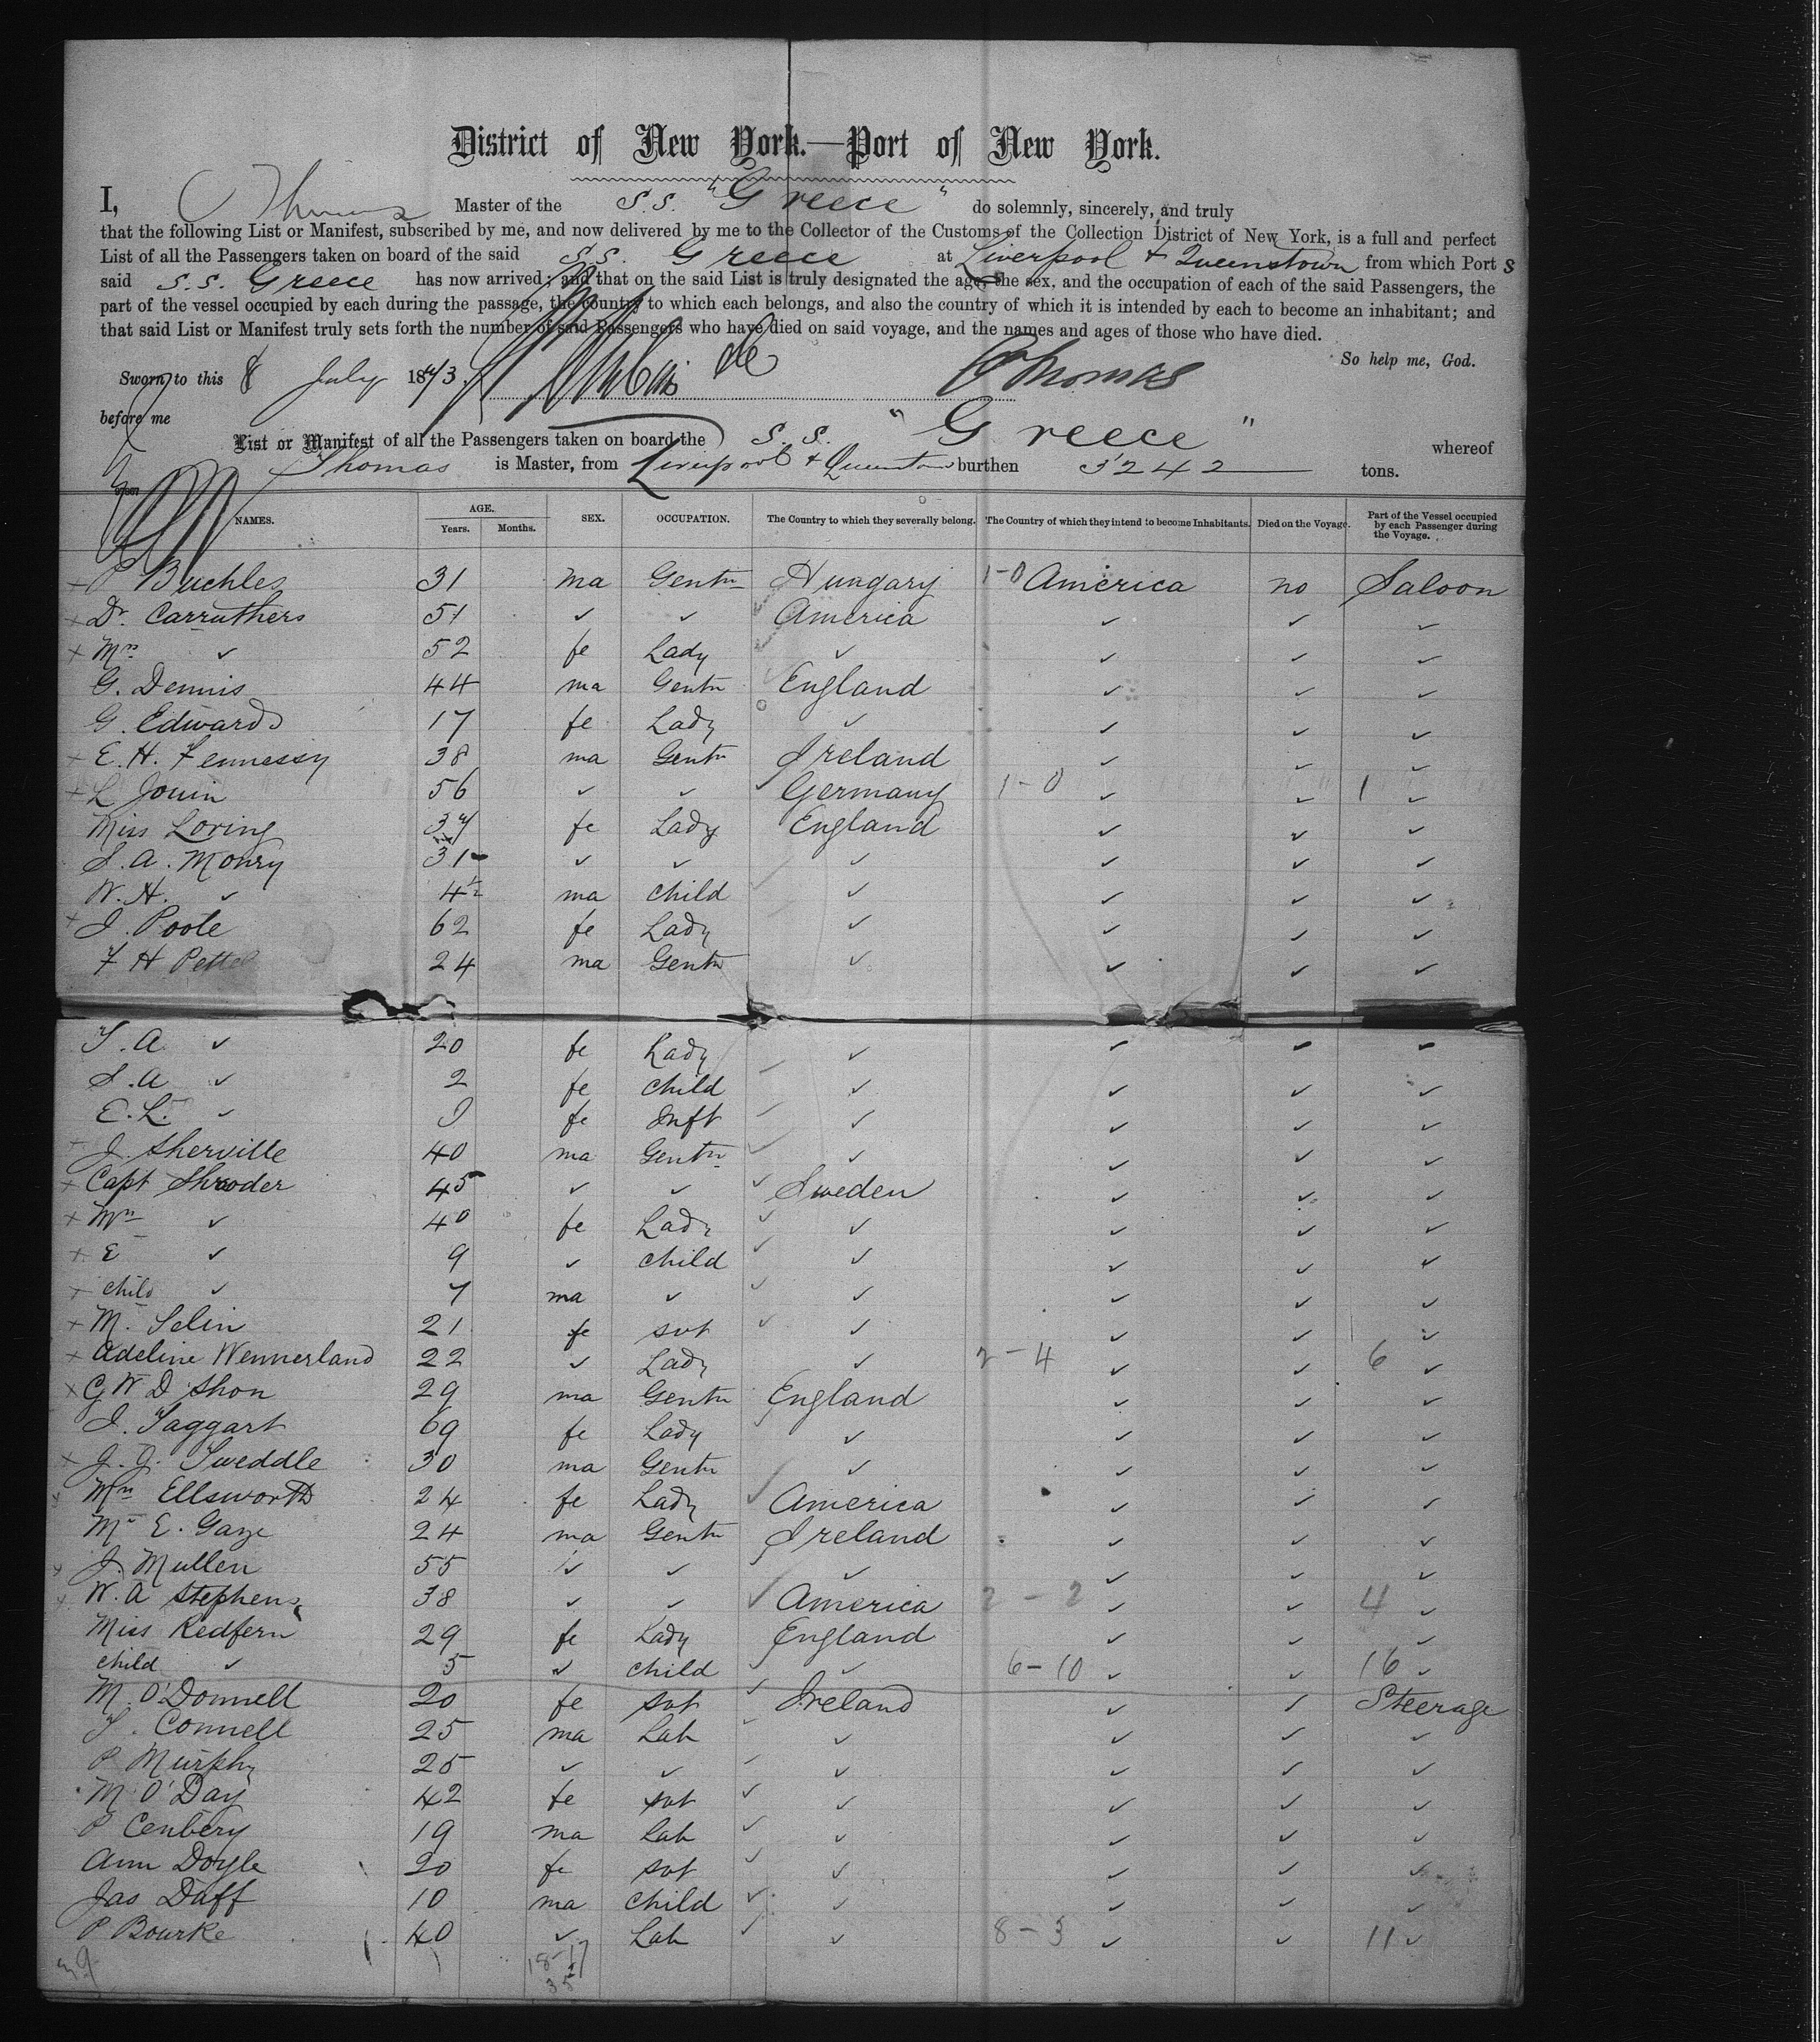 District of New York.—Port of New York.
I, Thomas Master of the S.S. "Greece" do solemnly, sincerely, and truly
that the following List or Manifest, subscribed by me, and now delivered by me to the Collector of the Customs of the Collection District of New York, is a full and perfect
List of all the Passengers taken on board of the said S.S. Greece at Liverpool & Queenstown from which Port s
said S.S. Greece has now arrived; and that on the said List is truly designated the age, the sex, and the occupation of each of the said Passengers, the
part of the vessel occupied by each during the passage, the country to which each belongs, and also the country of which it is intended by each to become an inhabitant; and
that said List or Manifest truly sets forth the number of said Passengers who have died on said voyage, and the names and ages of those who have died.
So help me, God.
Sworn to this 8 July 1873 Thomas
before me
List or Manifest of all the Passengers taken on board the S.S. "Greece" whereof
Thomas is Master, from Liverpool & Queenstown burthen 3242 tons.
NAMES. AGE. Years. Months. SEX. OCCUPATION. The Country to which they severally belong. The Country of which they intend to become Inhabitants. Died on the Voyage. Part of the Vessel occupied by each Passenger during the Voyage.
P Buchles 31 ma Gentn Hungary 1-0 America no Saloon
Dr Carruthers 51 ✓ ✓ America ✓ ✓ ✓
Mrs ✓ 52 fe Lady ✓ ✓ ✓ ✓
G. Dennis 44 ma Gentn England ✓ ✓ ✓
G. Edwards 17 fe Lady ✓ ✓ ✓ ✓
E. H. Fennessy 38 ma Gentn Ireland ✓ ✓ ✓
L Jouin 56 ✓ ✓ Germany 1-0 ✓ ✓ 1 ✓
Miss Loring 37 fe Lady England ✓ ✓ ✓
S. A. Monry 31 ✓ ✓ ✓ ✓ ✓ ✓
W. H. ✓ 4½ ma child ✓ ✓ ✓ ✓
J. Poole 62 fe Lady ✓ ✓ ✓ ✓
F H 24 ma Gentn ✓ ✓ ✓ ✓
T. A ✓ 20 fe Lady ✓ ✓ ✓ ✓
S. A ✓ 2 fe child ✓ ✓ ✓ ✓
E. L. ✓ fe Inft ✓ ✓ ✓ ✓
J. Sherville 40 ma Gentn ✓ ✓ ✓ ✓
Capt Shroder 45 ✓ ✓ Sweden ✓ ✓ ✓
Mrs ✓ 40 fe Lady ✓ ✓ ✓ ✓
E ✓ 9 ✓ child ✓ ✓ ✓ ✓
child ✓ 7 ma ✓ ✓ ✓ ✓ ✓
M. Selin 21 fe svt ✓ ✓ ✓ ✓
Adeline Wennerland 22 ✓ Lady ✓ 2-4 ✓ ✓ 6 ✓
G W D Shon 29 ma Gentn England ✓ ✓ ✓
J. Taggart 69 fe Lady ✓ ✓ ✓ ✓
J. J. Tweddle 30 ma Gentn ✓ ✓ ✓ ✓
Mrs Ellsworth 24 fe Lady America ✓ ✓ ✓
Mr E. Gaze 24 ma Gentn Ireland ✓ ✓ ✓
J. Mullen 55 ✓ ✓ ✓ ✓ ✓ ✓
W. A Stephens 38 ✓ ✓ America 2-2 ✓ ✓ 4 ✓
Miss Redfern 29 fe Lady England ✓ ✓ ✓
child ✓ 5 ✓ child ✓ 6-10 ✓ ✓ 16 ✓
M. O'Donnell 20 fe svt Ireland ✓ ✓ Steerage
T. Connell 25 ma Lab ✓ ✓ ✓ ✓
P Murphy 25 ✓ ✓ ✓ ✓ ✓ ✓
M O'Day 42 fe svt ✓ ✓ ✓ ✓
P Cenbery 19 ma Lab ✓ ✓ ✓ ✓
Ann Doyle 20 fe svt ✓ ✓ ✓ ✓
Jas Duff 10 ma child ✓ ✓ ✓ ✓
P Bourke 40 ✓ Lab ✓ 8-3 ✓ ✓ 11 ✓
39 18-17
35